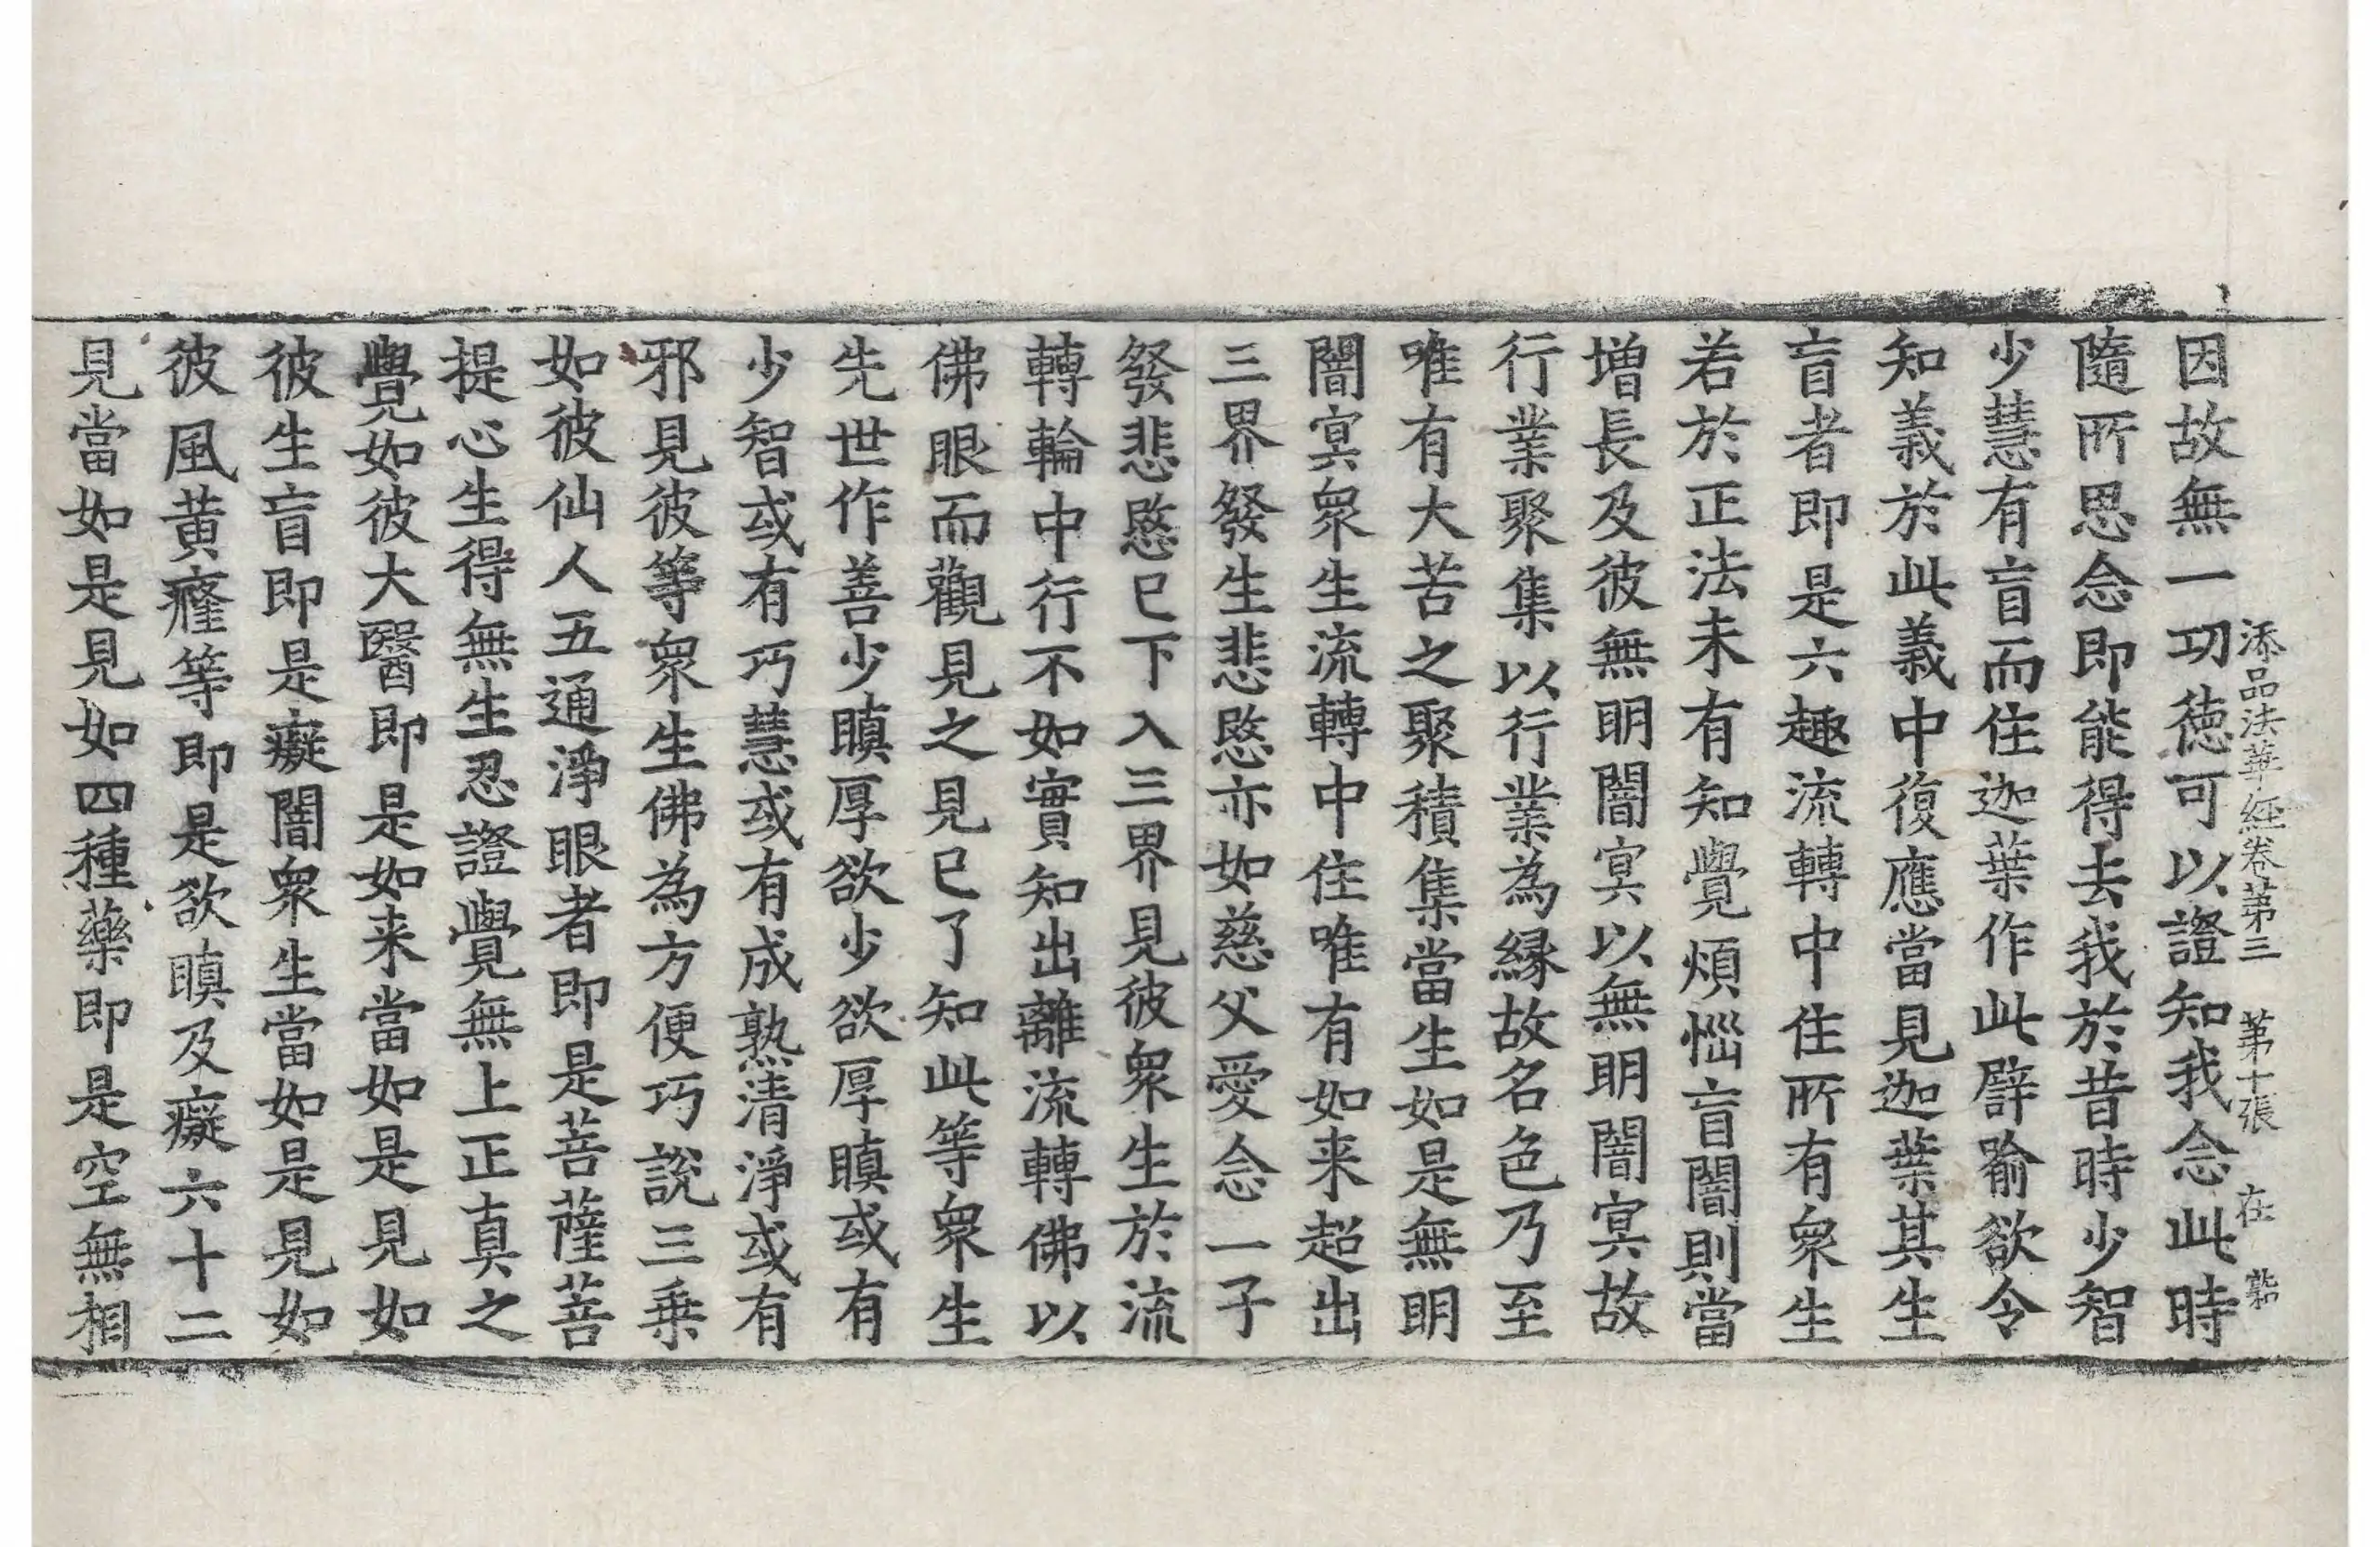 添品法華經卷第三 第十張 在
因故無一功德可以證知我念此時
隨所思念即能得去我於昔時少智
少慧有盲而住迦葉作此譬喻欲令
知義於此義中復應當見迦葉其生
盲者即是六趣流轉中住所有衆生
若於正法未有知覺煩惱盲闇則當
增長及彼無明闇冥以無明闇冥故
行業聚集以行業為緣故名色乃至
唯有大苦之聚積集當生如是無明
闇冥衆生流轉中住唯有如来超出
三界發生悲愍亦如慈父愛念一子
發悲愍已下入三界見彼衆生於流
轉輪中行不如實知出離流轉佛以
佛眼而觀見之見已了知此等衆生
先世作善少瞋厚欲少欲厚瞋或有
少智或有巧慧或有成熟清淨或有
邪見彼等衆生佛為方便巧說三乘
如彼仙人五通淨眼者即是菩薩菩
提心生得無生忍證覺無上正真之
覺如彼大醫即是如来當如是見如
彼生盲即是癡闇衆生當如是見如
彼風黄癊等即是欲瞋及癡六十二
見當如是見如四種藥即是空無相